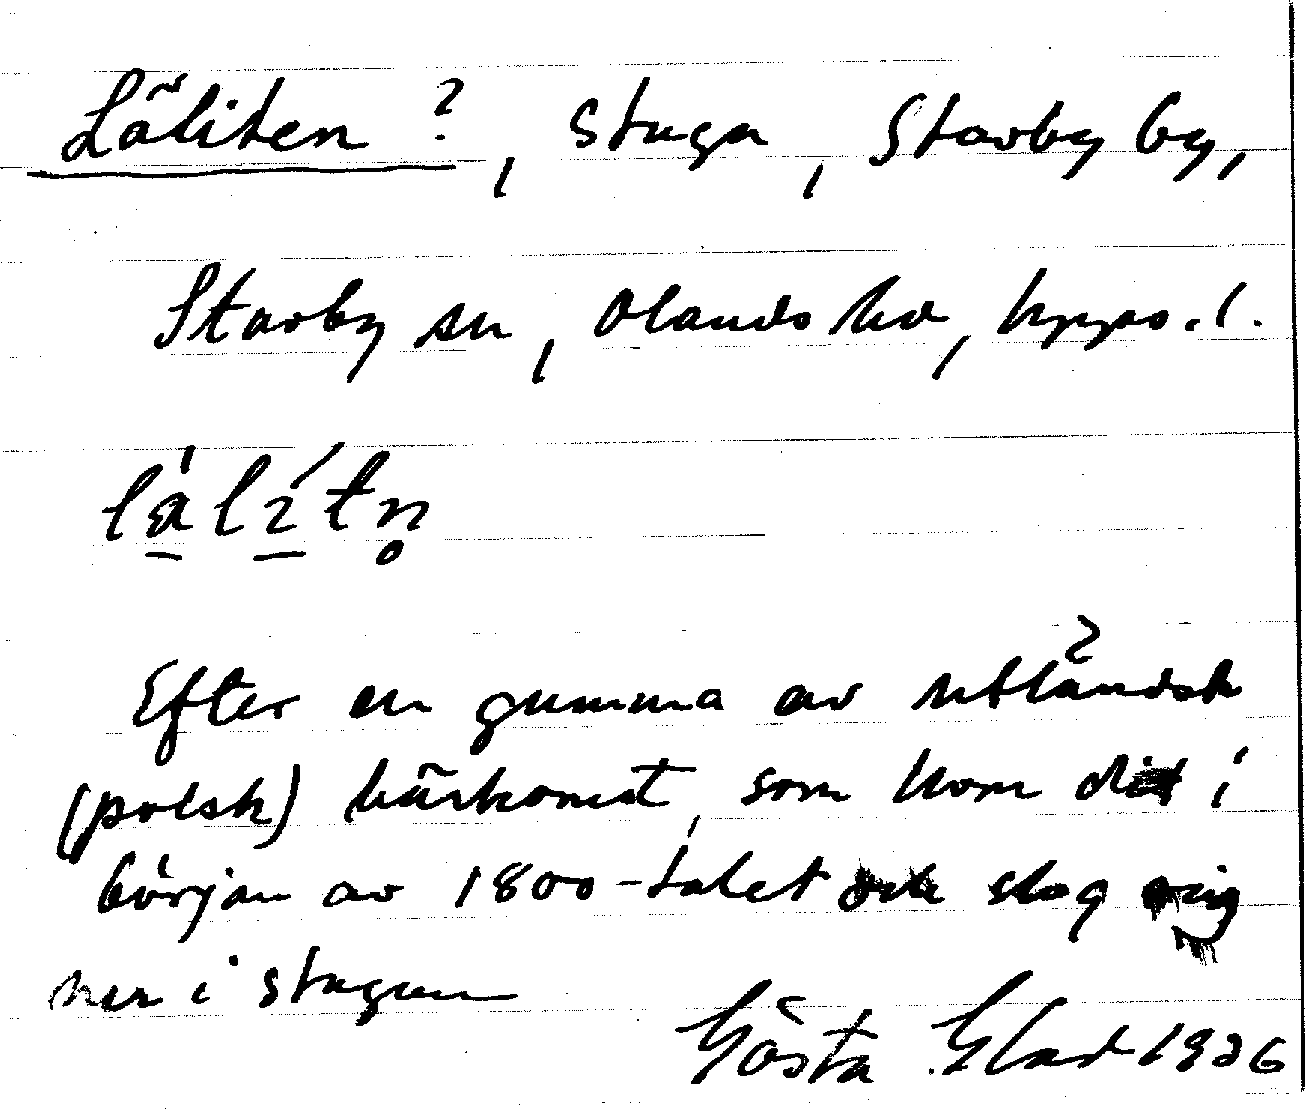 Läliten ?, stuga, Starby by,
Starby sn, Olands hd, Upps. l.
Efter en gumma av utländsk
(polsk) härkomst, som kom dit i
början av 1800-talet och slog sig
ner i stugan
Gösta Elad 1926